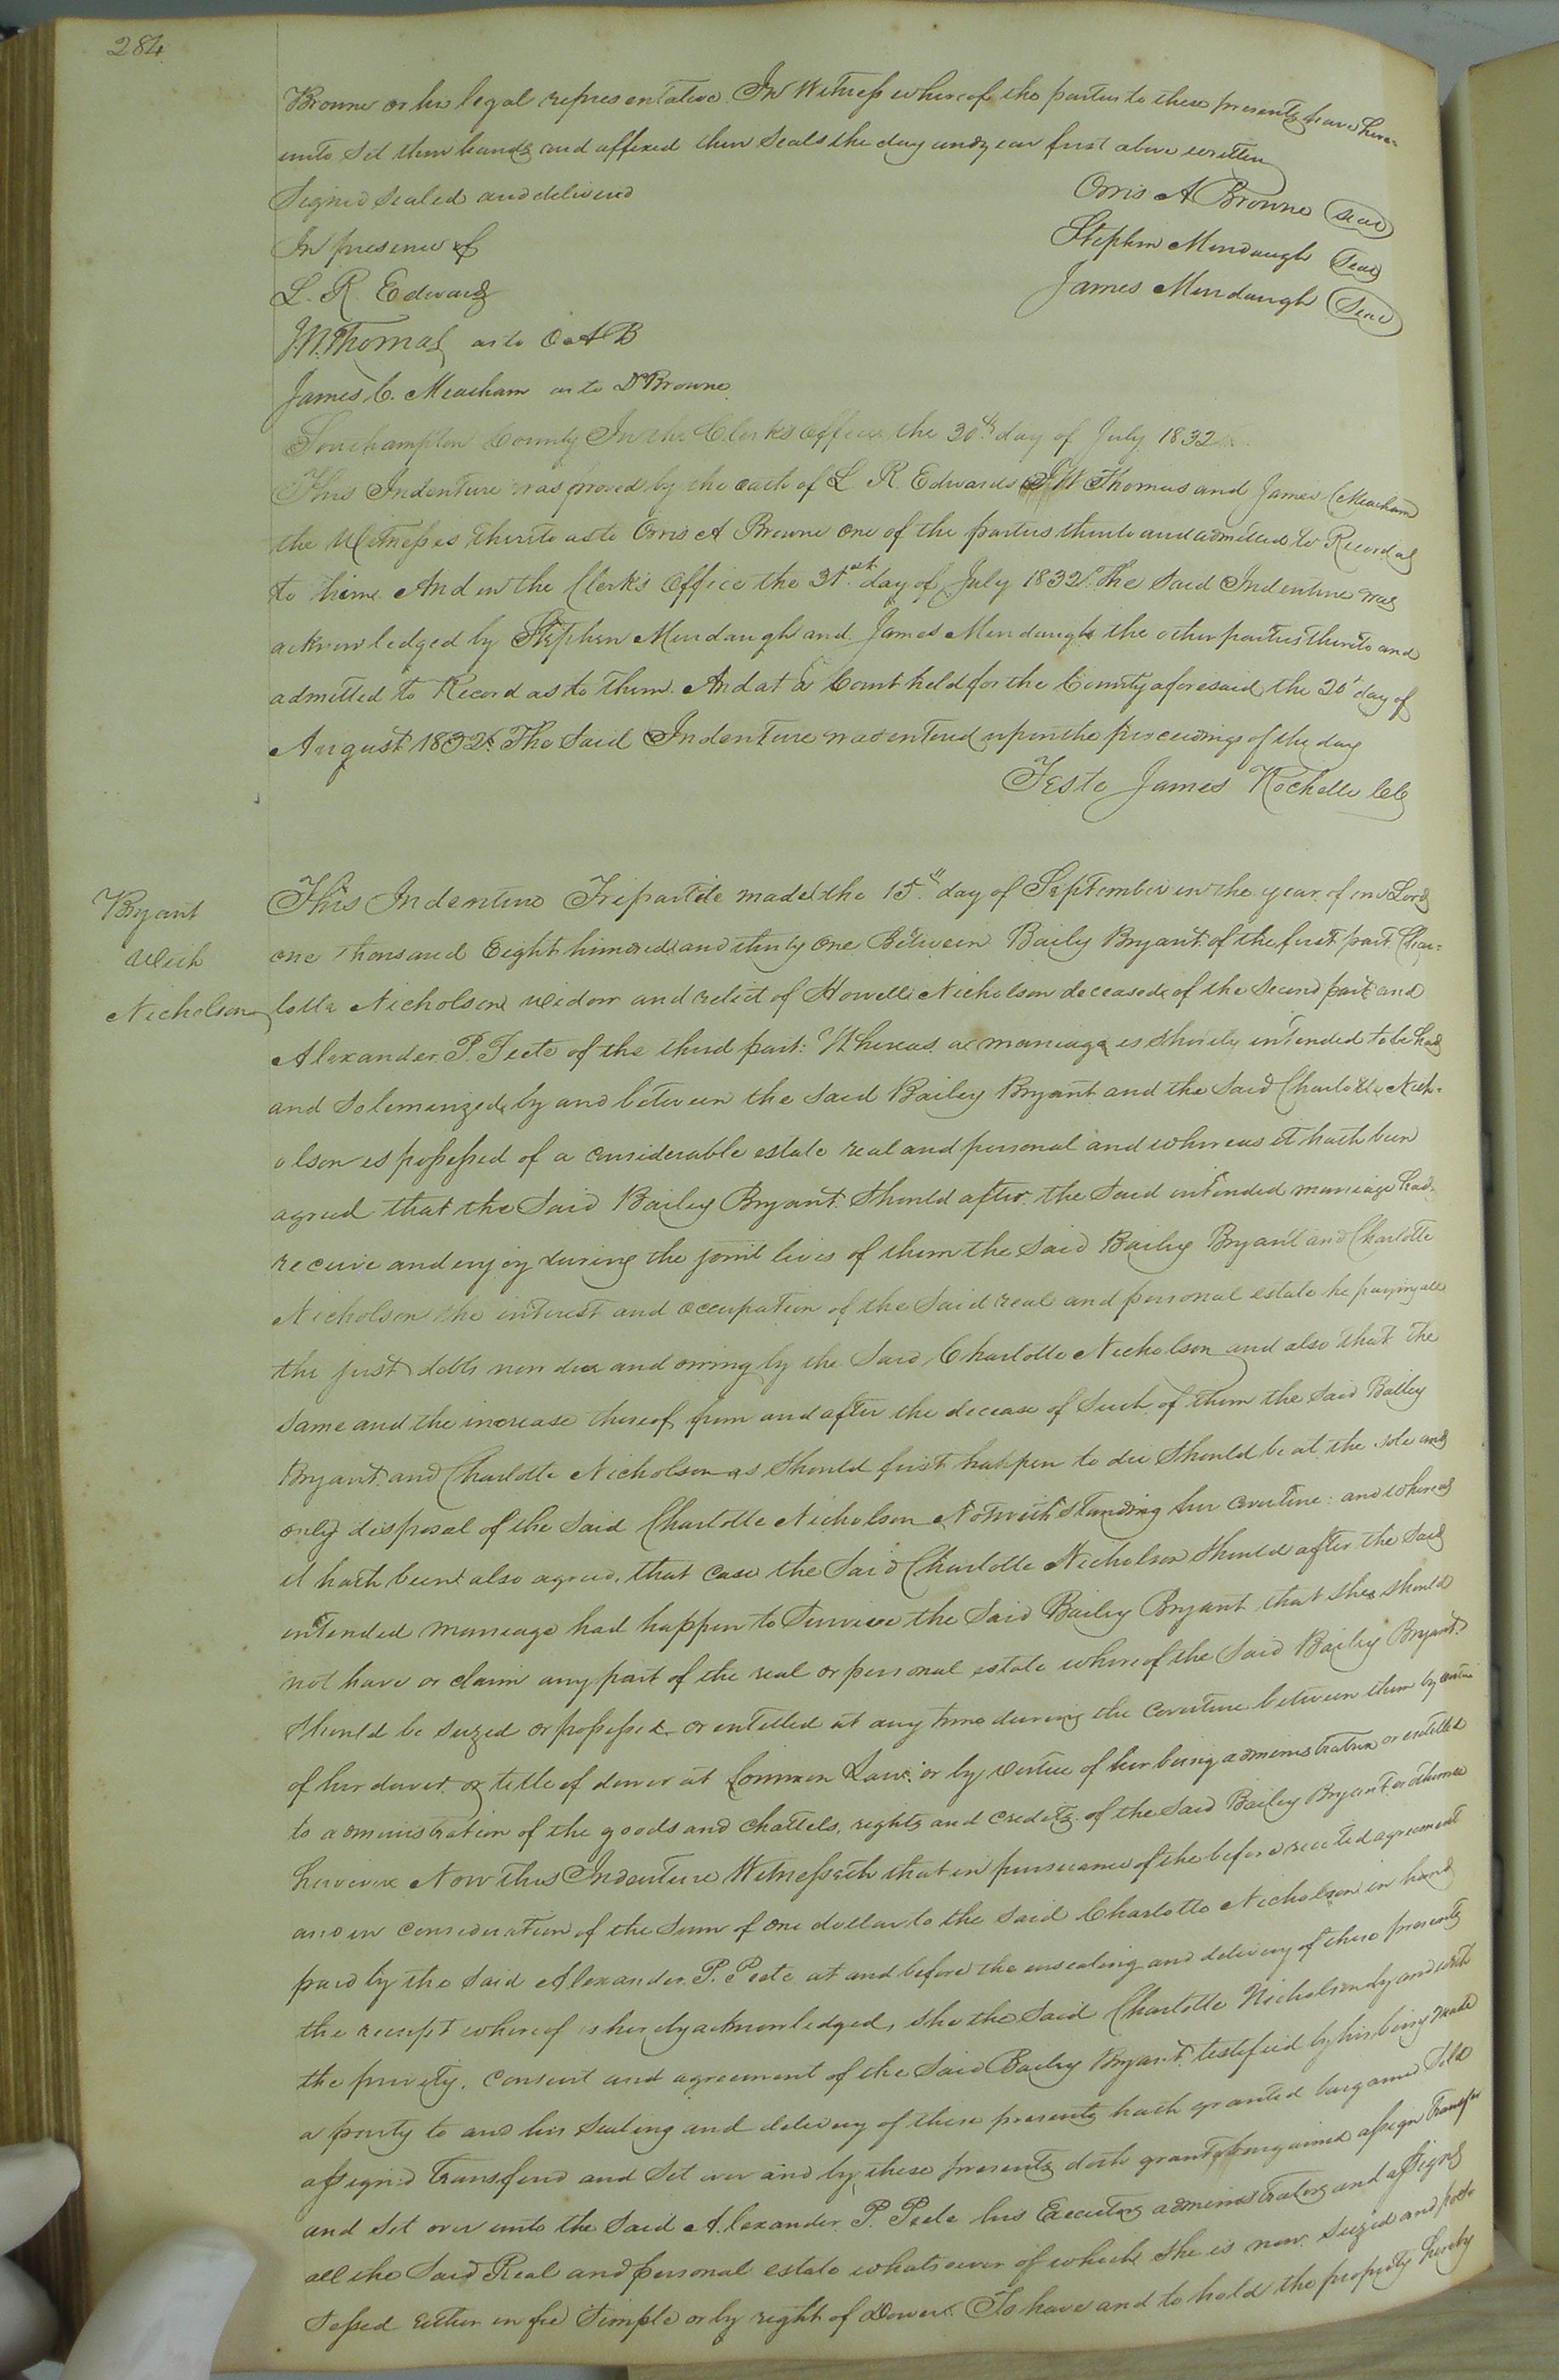 284
Browne or his legal representative In Witness whereof the parties to these presents have here-
unto set their hands and affixed their seals the day and year first above written
Signed Sealed and delivered
Orris A Browne Seal
In presence of
Stephen Mundaugh Seal
L. R. Edwards
James Mundaugh Seal
J.W. Thomas as to O A B
James C. Meacham as to Dr Browne
Southampton County In the Clerks office the 30th day of July 1832
This Indenture was proved by the oath of L R. Edwards J W Thomas and James C Meacham
the Witnesses thereto as to Orris A Browne one of the parties thereto and admitted to Record as
to him. And in the Clerk's Office the 31st day of July 1832. The said Indenture was
acknowledged by Stephen Mundaugh and James Mundaugh the other parties thereto and
admitted to Record as to them. And at a Court held for the County aforesaid the 20th day of
August 1832. The Said Indenture was entered upon the proceedings of the day
Teste James Rochelle CC
Bryant
With
Nicholson
This Indenture Tripartite made the 15th day of September in the year of our Lord
one thousand Eight hundred and thirty one Between Baily Bryant of the first part Char-
lotte Nicholson widow and relict of Howell Nicholson deceased of the Second part and
Alexander P. Peete of the third part: Whereas a marriage is shortly intended to be had
and Solemnized by and between the said Bailey Bryant and the Said Charlotte Nich-
olson is possessed of a considerable estate real and personal and whereas it hath been
agreed that the Said Bailey Bryant Should after the Said intended marriage had
receive and enjoy during the joint lives of them the Said Bailey Bryant and Charlotte
Nicholson the interest and occupation of the Said real and personal estate he paying all
the just debts now due and owing by the Said Charlotte Nicholson and also that the
same and the increase thereof from and after the decease of Such of them the said Bailey
Bryant and Charlotte Nicholson as Should first happen to die Should be at the sole and
only disposal of the Said Charlotte Nicholson Notwithstanding her coverture: and whereas
it hath been also agreed, that case the Said Charlotte Nicholson Should after the Said
intended marriage had happen to Survive the Said Bailey Bryant that she should
not have or claim any part of the real or personal estate whereof the Said Bailey Bryant
Should be seized or possessed or entitled at any time during the coverture between them by virtue
of her dower or title of dower at Common Law: or by virtue of her being administratrix or entitled
to administration of the goods and chattels, rights and credits of the Said Bailey Bryant or otherwise
however Now this Indenture Witnesseth that in pursuance of the before recited agreement
and in consideration of the Sum of one dollar to the said Charlotte Nicholson in hand
paid by the Said Alexander P. Peete at and before the ensealing and delivery of these presents
the receipt whereof is hereby acknowledged, She the Said Charlotte Nicholson by and with
the privity, consent and agreement of the Said Bailey Bryant testified by his being made
a party to and his Sealing and delivery of these presents hath granted bargained Sold
assigned transferred and Set over and by these presents doth grant bargained assign Transfer
and Set over unto the Said Alexander P. Peete his Executors administrators and assigns
all the Said Real and personal estate whatsoever of which She is now Seized and pos-
sessed either in fee Simple or by right of Dower. To have and to hold the property hereby